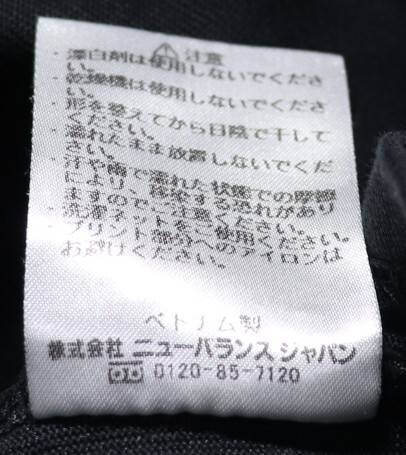 ⚠注意
・漂白剤は使用しないでくださ
い。
・乾燥機は使用しないでくださ
い。
・形を整えてから日陰で干して
ください。
・濡れたまま放置しないでくだ
さい。
・汗や雨で濡れた状態での摩擦
により、移染する恐れがあり
ますのでご注意ください。
・洗濯ネットをご使用ください。
・プリント部分へのアイロンは
お避けください。
ベトナム製
株式会社 ニューバランス ジャパン
0120-85-7120